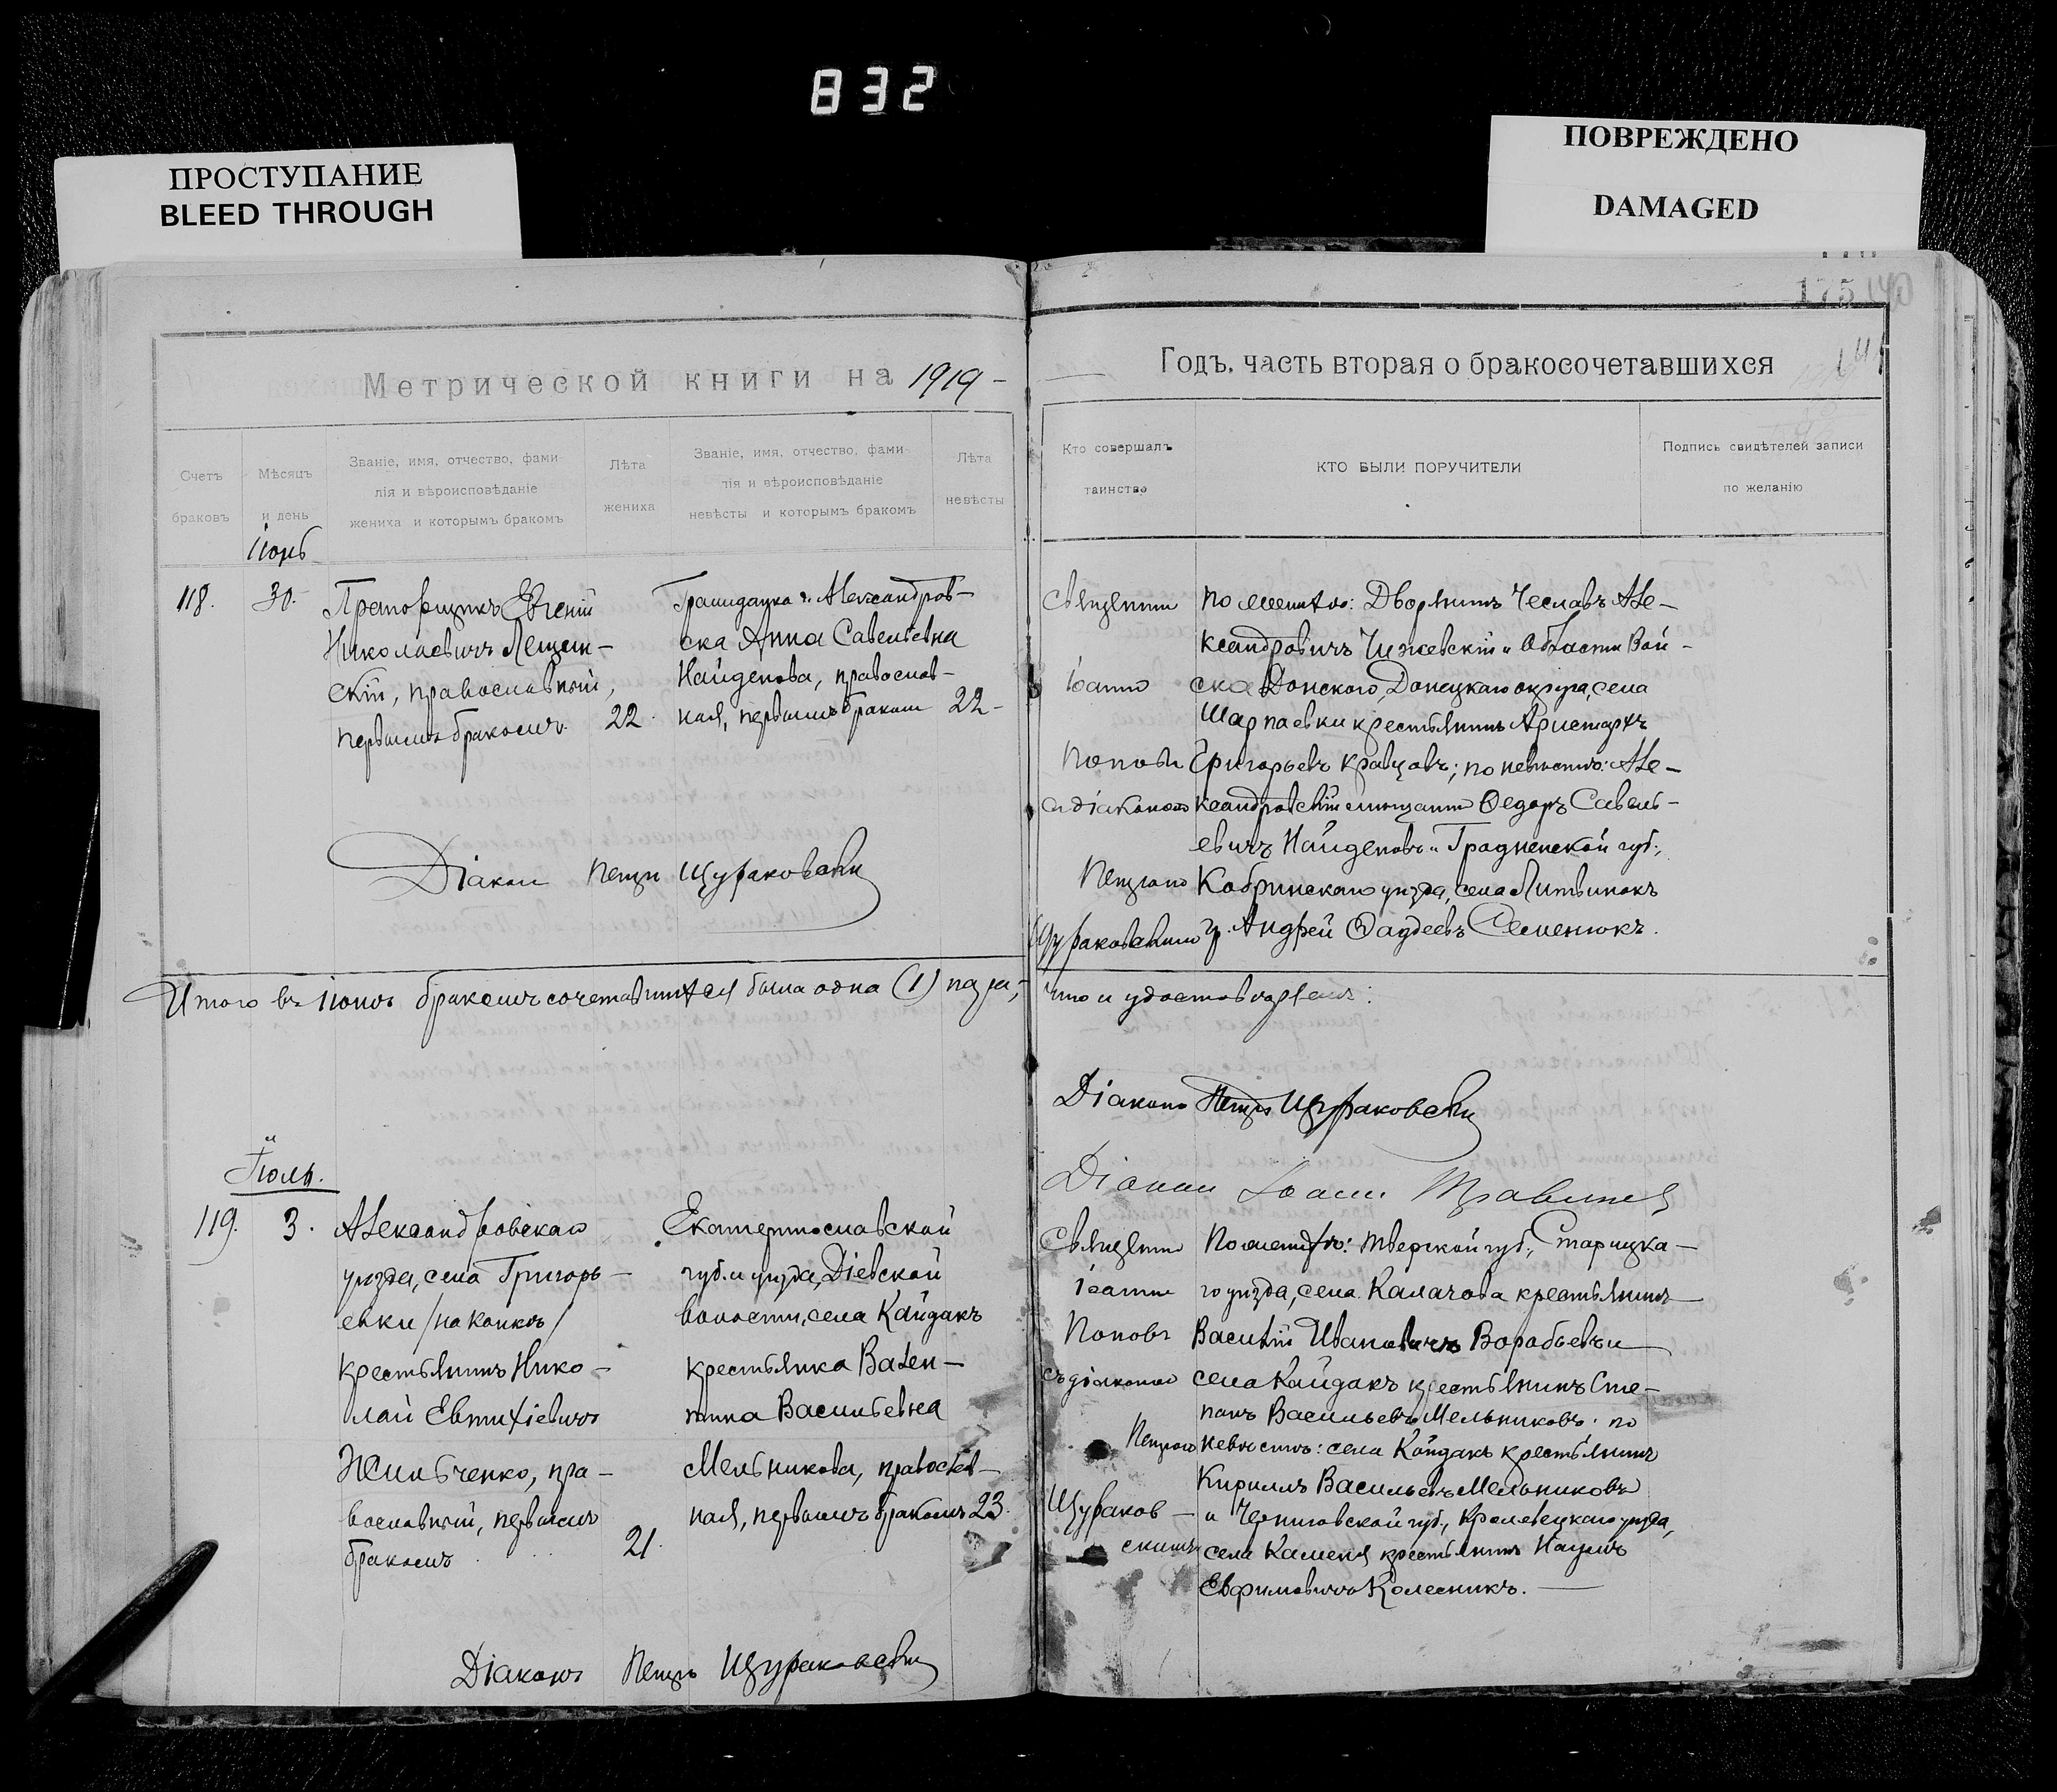 832
ПРОСТУПАНИЕ
BLEED THROUGH
ПОВРЕЖДЕНО
DAMAGED
175
140
Метрической книги на 1919 -
Счетъ
браковъ
Мѣсяцъ
и день
Званіе, имя, отчество, фами-
лія и вѣроисповѣданіе
жениха и которымъ бракомъ
Лѣта
жениха
Званіе, имя, отчество, фами-
лія и вѣроисповѣданіе
невѣсты и которымъ бракомъ
Лѣта
невѣсты
Іюнь
118.
30.
Прапорщикъ Евгеній
Николаевичъ Лещин-
скій, православный,
первымъ бракомъ.
22.
Гражданка г. Александров-
ска Анна Савельевна
Найденова, православ-
ная, первымъ бракомъ
22-
Діаконъ Петръ Щураковскій
Итого въ іюнѣ бракомъ сочетавшихся была одна (1) пара,-
Іюль.
119.
3.
Александровскаго
уѣзда, села Григорь-
евки /на Конкѣ/
крестьянинъ Нико-
лай Евтихіевичъ
Жильченко, пра-
вославный, первымъ
бракомъ
21.
Екатеринославской
губ. и уѣзда, Діевской
волости, села Кайдакъ
крестьянка Вален-
тина Васильевна
Мельникова, православ-
ная, первымъ бракомъ
23.
Діаконъ Петръ Щураковскій
Годъ, часть вторая о бракосочетавшихся
Кто совершалъ
таинство
КТО БЫЛИ ПОРУЧИТЕЛИ
Подпись свидѣтелей записи
по желанію
Священникъ
Іоаннъ
Поповъ
съ діакономъ
Петромъ
Щураковскимъ
По женихѣ: Дворянинъ Чеславъ Але-
ксандровичъ Чижевскій и Области Вой-
ска Донского, Донецкаго округа, села
Шарпаевки крестьянинъ Аристархъ
Григорьевъ Кравцовъ; по невѣстѣ: Але-
ксандровскій мѣщанинъ Ѳедоръ Савель-
евичъ Найденовъ и Гродненской губ.,
Кобринскаго уѣзда, села Литвинокъ
гр. Андрей Ѳаддеевъ Семенюкъ.
что и удостовѣряемъ:
Діаконъ Петръ Щураковскій
Діаконъ Іоаннъ
Священникъ
Іоаннъ
Поповъ
съ діакономъ
Петромъ
Щураков-
скимъ
По женихѣ: Тверской губ., Старицка-
го уѣзда, села Калачова крестьянинъ
Василій Ивановичъ Воробьевъ и
села Кайдакъ крестьянинъ Сте-
панъ Васильевъ Мельниковъ; по
невѣстѣ: села Кайдакъ крестьянинъ
Кириллъ Васильевъ Мельниковъ
и Черниговской губ., Кролевецкаго уѣзда,
села Каменя крестьянинъ Наумъ
Евфимовичъ Колесникъ.